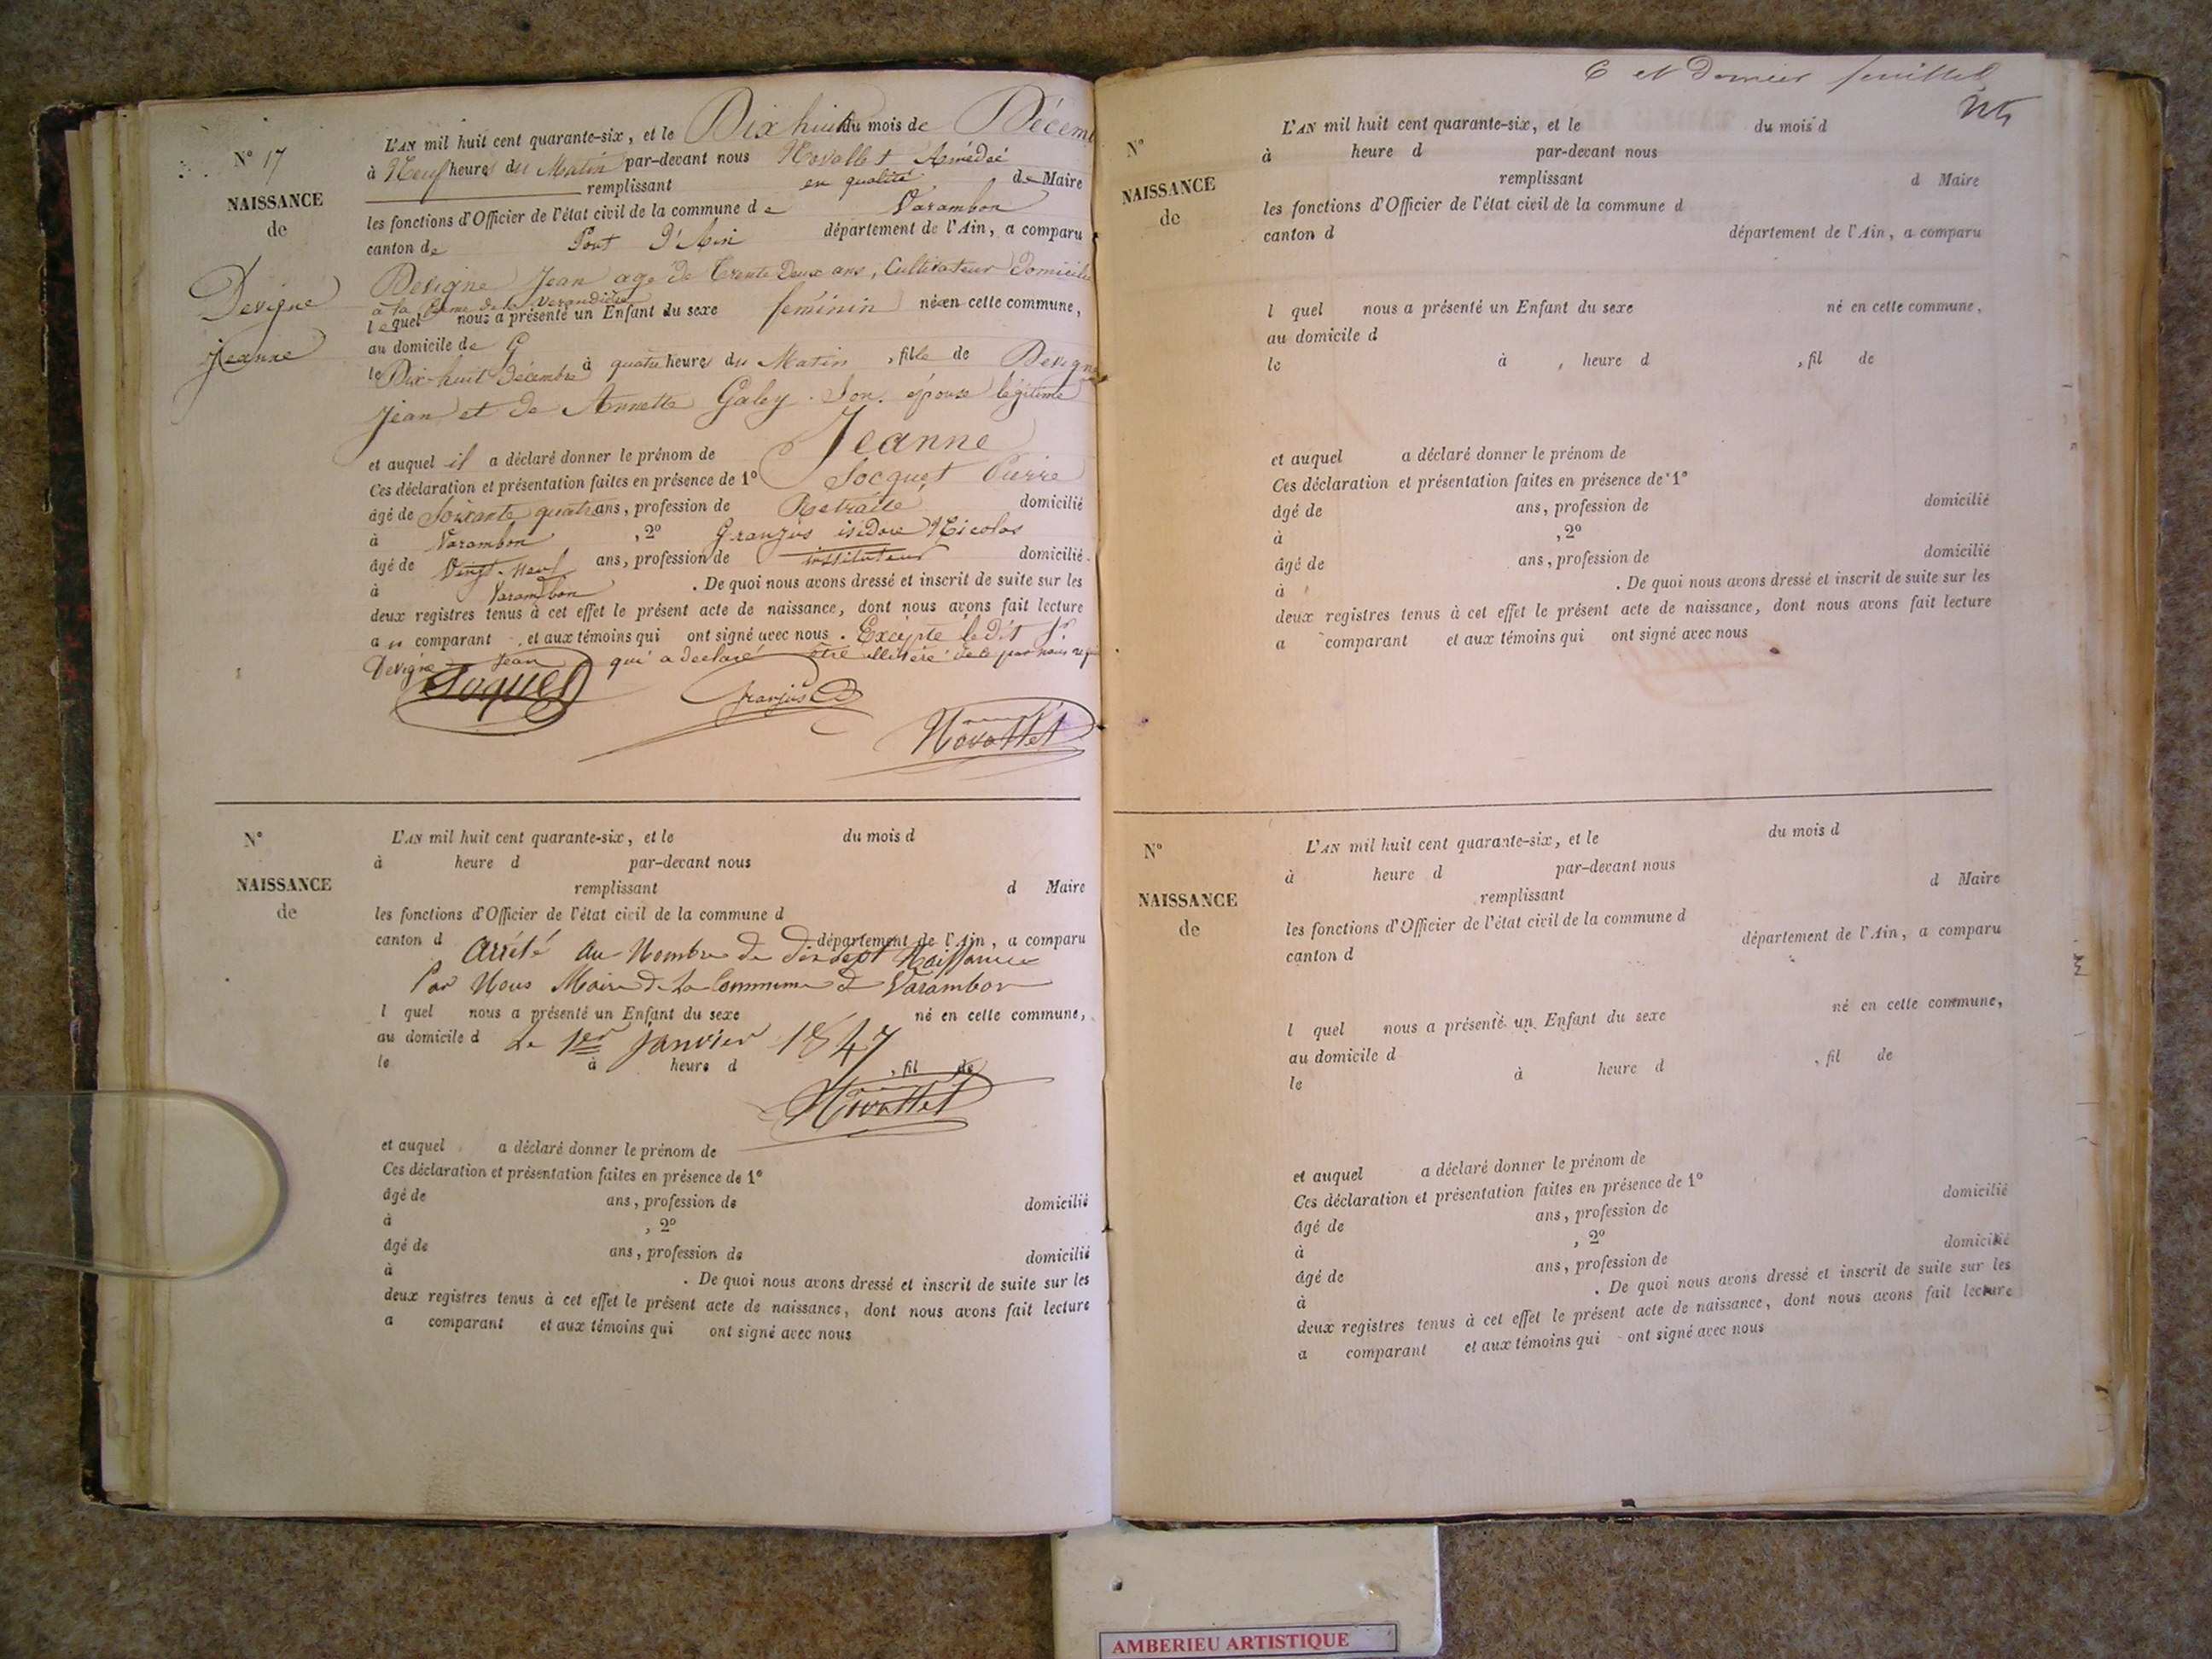 N° 17
NAISSANCE
de
Devigne
Jeanne
L'AN mil huit cent quarante-six, et le Dix huit du mois de Décemb
à Neuf heures du Matin par-devant nous Novallet Amédée
remplissant en qualité de Maire
les fonctions d'Officier de l'état civil de la commune de Varambon
canton de Pont d'Ain département de l'Ain, a comparu
Devigne Jean agé de Trente Deux ans, Cultivateur Domicilié
à la ferme de la
lequel nous a présenté un Enfant du sexe féminin née en cette commune,
au domicile de
le Dix-huit Décembre à quatre heures du Matin, fille de Devigne
Jean et de Annette Galey Son épouse légitime
et auquel il a déclaré donner le prénom de Jeanne
Ces déclaration et présentation faites en présence de 1° Socquet Pierre
âgé de Soixante quatre ans, profession de Retraité domicilié
à Varambon, 2° Granjus isidore Nicolas
âgé de Vingt-neuf ans, profession de instituteur domicilié
à Varambon. De quoi nous avons dressé et inscrit de suite sur les
deux registres tenus à cet effet le présent acte de naissance, dont nous avons fait lecture
au comparant et aux témoins qui ont signé avec nous. Excepté le dit Sr.
Devigne Jean qui a déclaré être illitéré de ce par nous requis
Soquet
Granjus
Novallet
N°
NAISSANCE
de
L'AN mil huit cent quarante-six, et le du mois d
à heure d par-devant nous
remplissant d Maire
les fonctions d'Officier de l'état civil de la commune d
canton d département de l'Ain, a comparu
Arrêté au Nombre de dix sept Naissance
Par Nous Maire de la Commune de Varambon
l quel nous a présenté un Enfant du sexe né en cette commune,
au domicile d
Le 1er Janvier 1847
le à heure d , fil de
Novallet
et auquel a déclaré donner le prénom de
Ces déclaration et présentation faites en présence de 1°
âgé de ans, profession de domicilié
à , 2°
âgé de ans, profession de domicilié
à . De quoi nous avons dressé et inscrit de suite sur les
deux registres tenus à cet effet le présent acte de naissance, dont nous avons fait lecture
a comparant et aux témoins qui ont signé avec nous
6 et Dernier feuillet
N°
NAISSANCE
de
L'AN mil huit cent quarante-six, et le du mois d
à heure d par-devant nous
remplissant d Maire
les fonctions d'Officier de l'état civil de la commune d
canton d département de l'Ain, a comparu
l quel nous a présenté un Enfant du sexe né en cette commune,
au domicile d
le à , heure d , fil de
et auquel a déclaré donner le prénom de
Ces déclaration et présentation faites en présence de 1°
âgé de ans, profession de domicilié
à , 2°
âgé de ans, profession de domicilié
à . De quoi nous avons dressé et inscrit de suite sur les
deux registres tenus à cet effet le présent acte de naissance, dont nous avons fait lecture
a comparant et aux témoins qui ont signé avec nous
N°
NAISSANCE
de
L'AN mil huit cent quarante-six, et le du mois d
à heure d par-devant nous
remplissant d Maire
les fonctions d'Officier de l'état civil de la commune d
canton d département de l'Ain, a comparu
l quel nous a présenté un Enfant du sexe né en cette commune,
au domicile d
le à heure d , fil de
et auquel a déclaré donner le prénom de
Ces déclaration et présentation faites en présence de 1°
âgé de ans, profession de domicilié
à , 2°
âgé de ans, profession de domicilié
à . De quoi nous avons dressé et inscrit de suite sur les
deux registres tenus à cet effet le présent acte de naissance, dont nous avons fait lecture
a comparant et aux témoins qui ont signé avec nous
AMBERIEU ARTISTIQUE